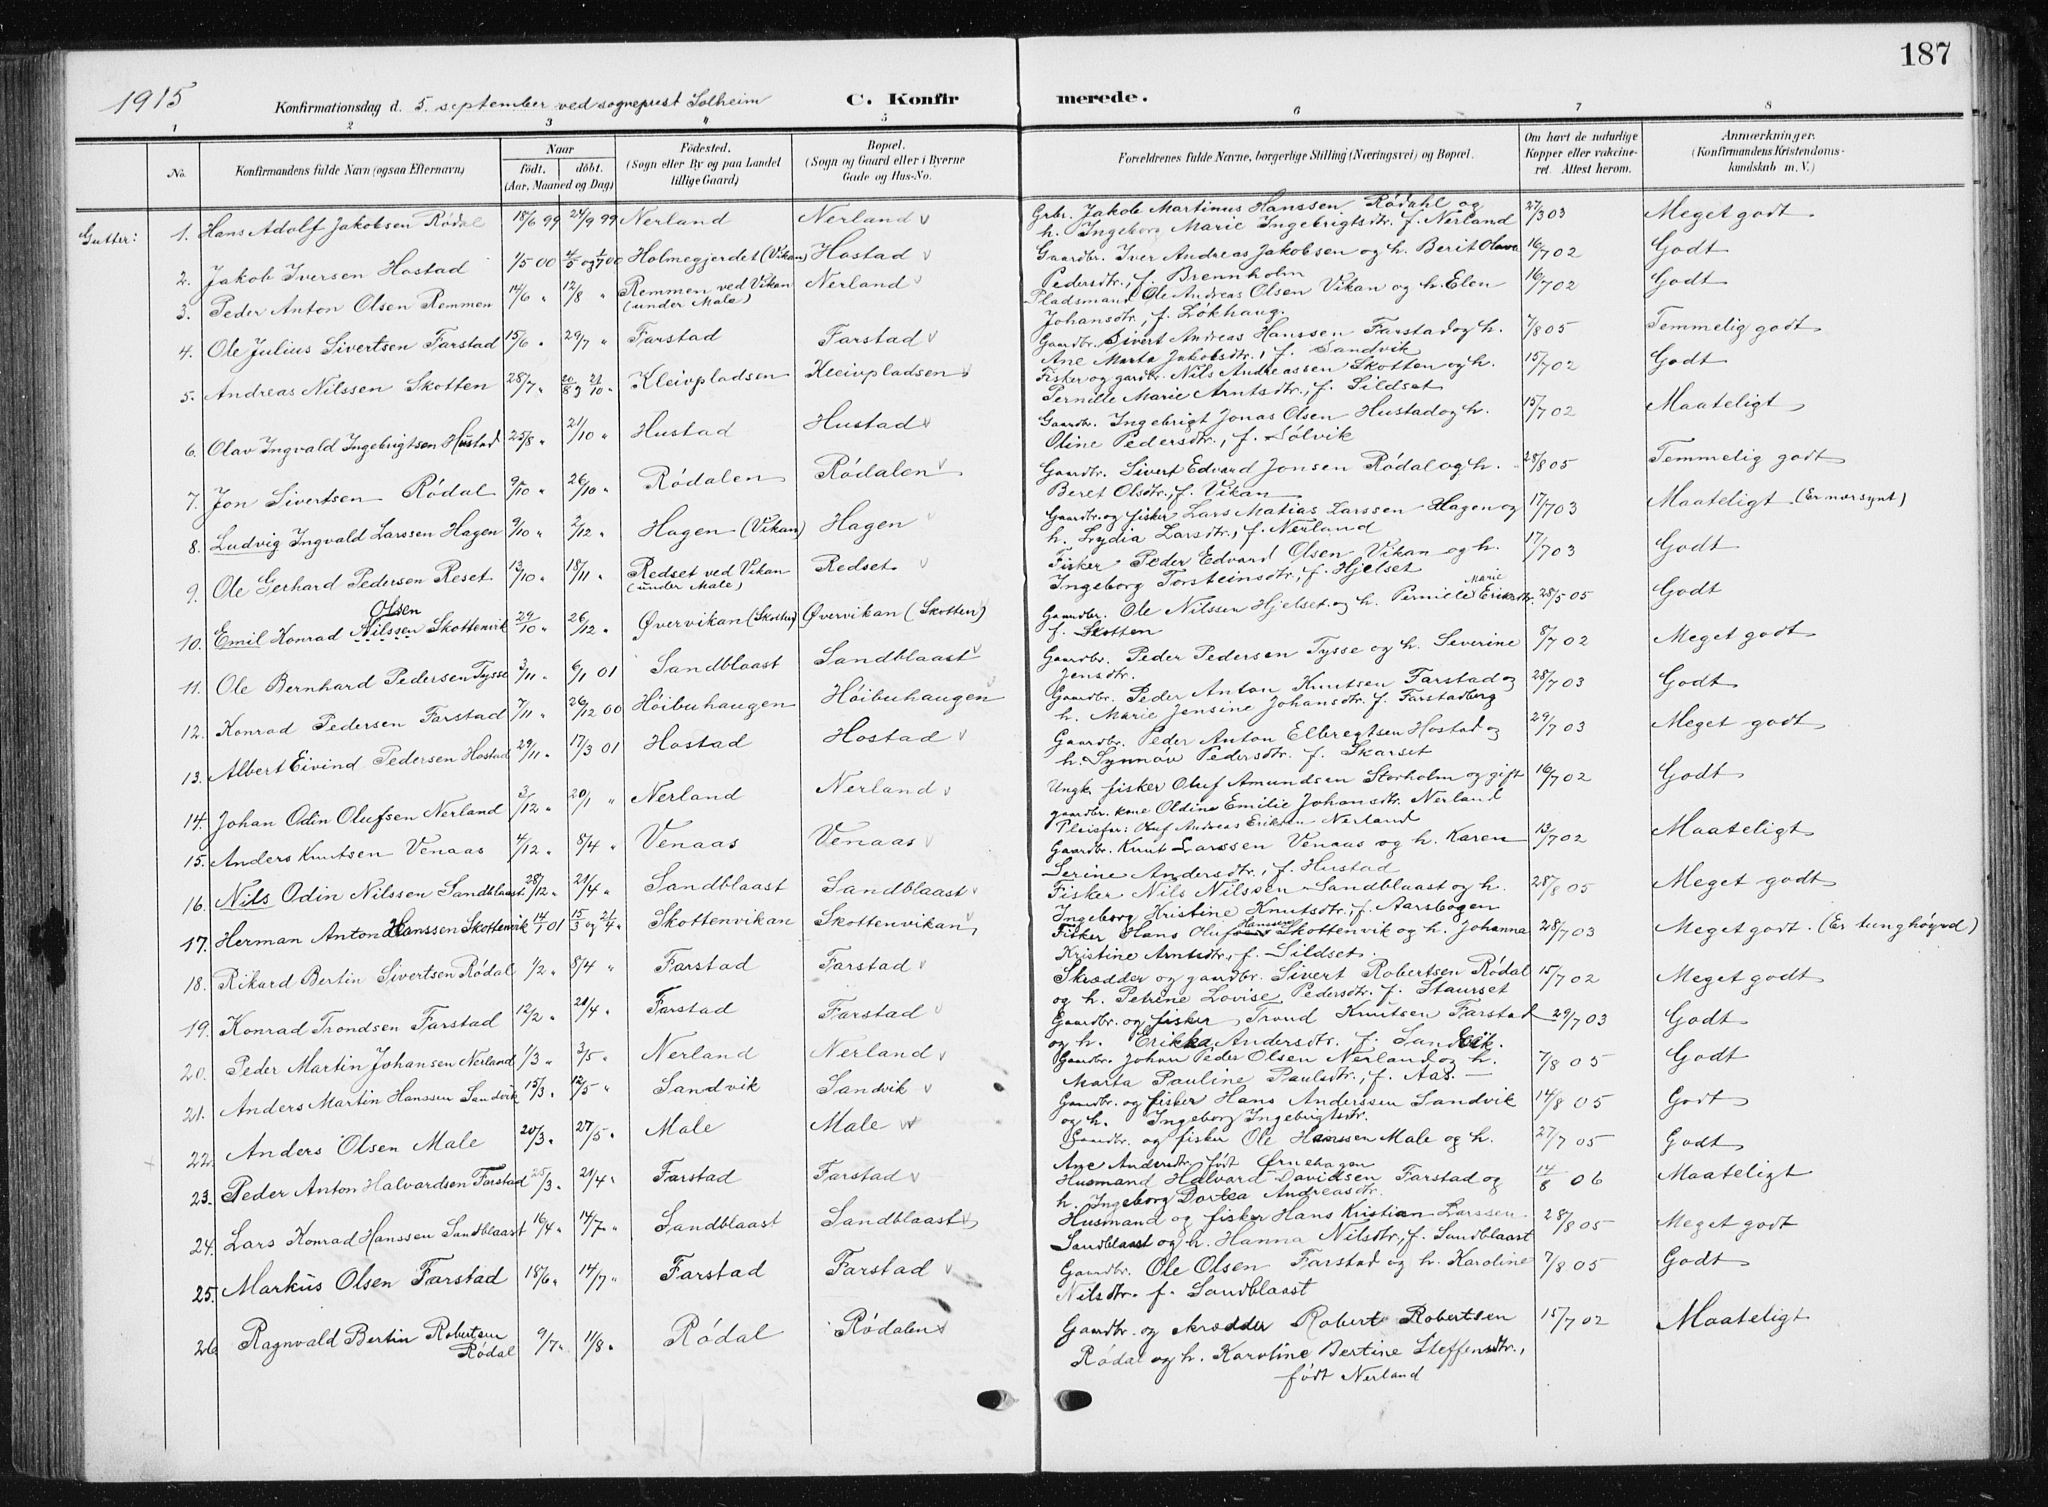 187
1915 Konfirmationsdag d. 5. september ved sogneprest Solheim C. Konfirmerede.
1 2 3 4 5 6 7 8
No. Konfirmandens fulde Navn (ogsaa Efternavn) Naar født. døbt. (Aar, Maaned og Dag) Fødested. (Sogn eller By og paa Landet tillige Gaard) Bopæl. (Sogn og Gaard eller i Byerne Gade og Hus-No. Forældrenes fulde Navne, borgerlige Stilling (Næringsvei) og Bopæl. Om havt de naturlige Kopper eller vakcineret. Attest herom. Anmærkninger. (Konfirmandens Kristendomskundskab m. V.)
Gutter: 1. Hans Adolf Jakobsen Rødal 18/6 99 24/9 99 Nerland Nerland Grbr. Jakob Martinus Hanssen Rødahl og 27/3 03 Meget godt
h. Ingeborg Marie Ingebrigtsdtr. f. Nerland
2. Jakob Iversen Hostad 1/5 00 4/5 og 1/7 00 Holmegjerdet (Vikan) Hostad Gaardbr. Iver Andreas Jakobsen og h. Berit Olave 16/7 02 Godt
Pedersdtr., f. Brennholm
3. Peder Anton Olsen Remmen 14/6 " 12/8 " Remmen ved Vikan (under Male) Nerland Pladsmand Ole Andreas Olsen Vikan og h. Elen 16/7 02 Godt
Johansdtr., f. Løkhaug.
4. Ole Julius Sivertsen Farstad 15/6 " 29/7 " Farstad Farstad Gaardbr. Sivert Andreas Hanssen Farstad og h. 7/8 05 Temmelig godt
Ane Marta Jakobsdtr., f. Sandvik
5. Andreas Nilssen Skotten 28/7 " 20/8 og 21/10 " Kleivpladsen Kleivpladsen Fisker og gardbr. Nils Andreassen Skotten og h. 15/7 02 Godt
Pernille Marie Arntsdtr., f. Sildset
6. Olav Ingvald Ingebrigtsen Hustad 25/8 " 21/10 " Hustad Hustad Gaardbr. Ingebrigt Jonas Olsen Hustad og h. 15/7 02 Maateligt
Oline Pedersdtr., f. Sølvik
7. Jon Sivertsen Rødal 9/10 " 26/10 " Rødalen Rødalen Gaardbr. Sivert Edvard Jonsen Rødal og h. 28/8 05 Temmelig godt
Beret Olsdtr., f. Vikan
8. Ludvig Ingvald Larssen Hagen 9/10 " 2/12 " Hagen (Vikan) Hagen Gaardbr. og fisker Lars Matias Larssen Hagen og 17/7 03 Maateligt (Er nærsynt)
h. Lydia Larsdtr., f. Nerland
9. Ole Gerhard Pedersen Reset 13/10 " 18/11 " Redset ved Vikan (under Male) Redset Fisker Peder Edvard Olsen Vikan og h. 17/7 03 Godt
Ingeborg Torsteinsdtr., f. Hjelset
10. Emil Konrad Nilssen Olsen Skottenvik 29/10 " 26/12 " Øvervikan (Skotten) Øvervikan (Skotten) Gaardbr. Ole Nilssen Hjelset og h. Pernille Marie Eriksdtr. 28/5 05 Godt
f. Skotten
11. Ole Bernhard Pedersen Tysse 3/11 " 6/1 01 Sandblaast Sandblaast Gaardbr. Peder Pedersen Tysse og h. Severine 8/7 02 Meget godt
Jensdtr.
12. Konrad Pedersen Farstad 7/11 " 26/12 00 Høibuhaugen Høibuhaugen Gaardbr. Peder Anton Knutsen Farstad og 28/7 03 Godt
h. Marie Jensine Johansdtr. f. Farstadberg
13. Albert Eivind Pedersen Hostad 29/11 " 17/3 01 Hostad Hostad Gaardbr. Peder Anton Elbregtsen Hostad og 29/7 03 Meget godt
h. Synnøv Pedersdtr. f. Skarset
14. Johan Odin Olufsen Nerland 3/12 " 20/1 " Nerland Nerland Ungk. fisker Oluf Amundsen Storholm og gift 16/7 02 Godt
gaardbr. kone Oldine Emilie Johansdtr. Nerland
Pleiefar: Oluf Andreas Eriksen Nerland
15. Anders Knutsen Venaas 4/12 " 8/4 " Venaas Venaas Gaardbr. Knut Larssen Venaas og h. Karen 13/7 02 Maateligt
Serine Andersdtr., f. Hustad
16. Nils Odin Nilssen Sandblaast 28/12 " 21/4 " Sandblaast Sandblaast Fisker Nils Nilssen Sandblaast og h. 28/8 05 Meget godt
Ingeborg Kristine Knutsdtr., f. Aarsbogen
17. Herman Anton Hanssen Skottenvik 14/1 01 15/3 og 21/4 " Skottenvikan Skottenvikan Fisker Hans Oluf Hanssen Skottenvik og h. Johanna 28/7 03 Meget godt. (Er tunghøyrd)
Kristine Arntsdtr., f. Sildset.
18. Rikard Bertin Sivertsen Rødal 1/2 " 8/4 " Farstad Farstad Skrædder og gaardbr. Sivert Robertsen Rødal 15/7 02 Meget godt
og h. Petrine Lovise Pedersdtr. f. Staurset
19. Konrad Trondsen Farstad 12/2 " 21/4 " Farstad Farstad Gaardbr. og fisker Trond Knutsen Farstad 29/7 03 Godt
og h. Erikka Andersdtr. f. Sandvik.
20. Peder Martin Johansen Nerland 1/3 " 3/5 " Nerland Nerland Gaardbr. Johan Peder Olsen Nerland og h. 7/8 05 Godt
Marta Pauline Paulsdtr., f. Aas.
21. Anders Martin Hanssen Sandvik 15/3 " 12/5 " Sandvik Sandvik Gaardbr. og fisker Hans Anderssen Sandvik 14/8 05 Godt
og h. Ingeborg Ingebrigtsdtr.
22. Anders Olsen Male 20/3 " 27/5 " Male Male Gaardbr. og fisker Ole Hanssen Male og h. 27/7 05 Godt
Ane Andersdtr. født Ørnehagen
23. Peder Anton Halvardsen Farstad 25/3 " 21/4 " Farstad Farstad Husmand Halvard Davidsen Farstad og 14/8 06 Maateligt
h. Ingeborg Dortea Andreasdtr.
24. Lars Konrad Hanssen Sandblaast 16/4 " 14/7 " Sandblaast Sandblaast Husmand og fisker Hans Kristian Larssen 28/8 05 Meget godt
Sandblaast og h. Hanna Nilsdtr., f. Sandblaast
25. Markus Olsen Farstad 18/6 " 14/7 " Farstad Farstad Gaardbr. Ole Olsen Farstad og h. Karoline 7/8 05 Godt
Nilsdtr. f. Sandblaast
26 Ragnvald Bertin Robertsen Rødal 9/7 " 11/8 " Rødal Rødalen Gaardbr. og skrædder Robert Robertsen 15/7 02 Maateligt
Rødal og h. Karoline Bertine Steffensdtr.,
født Nerland